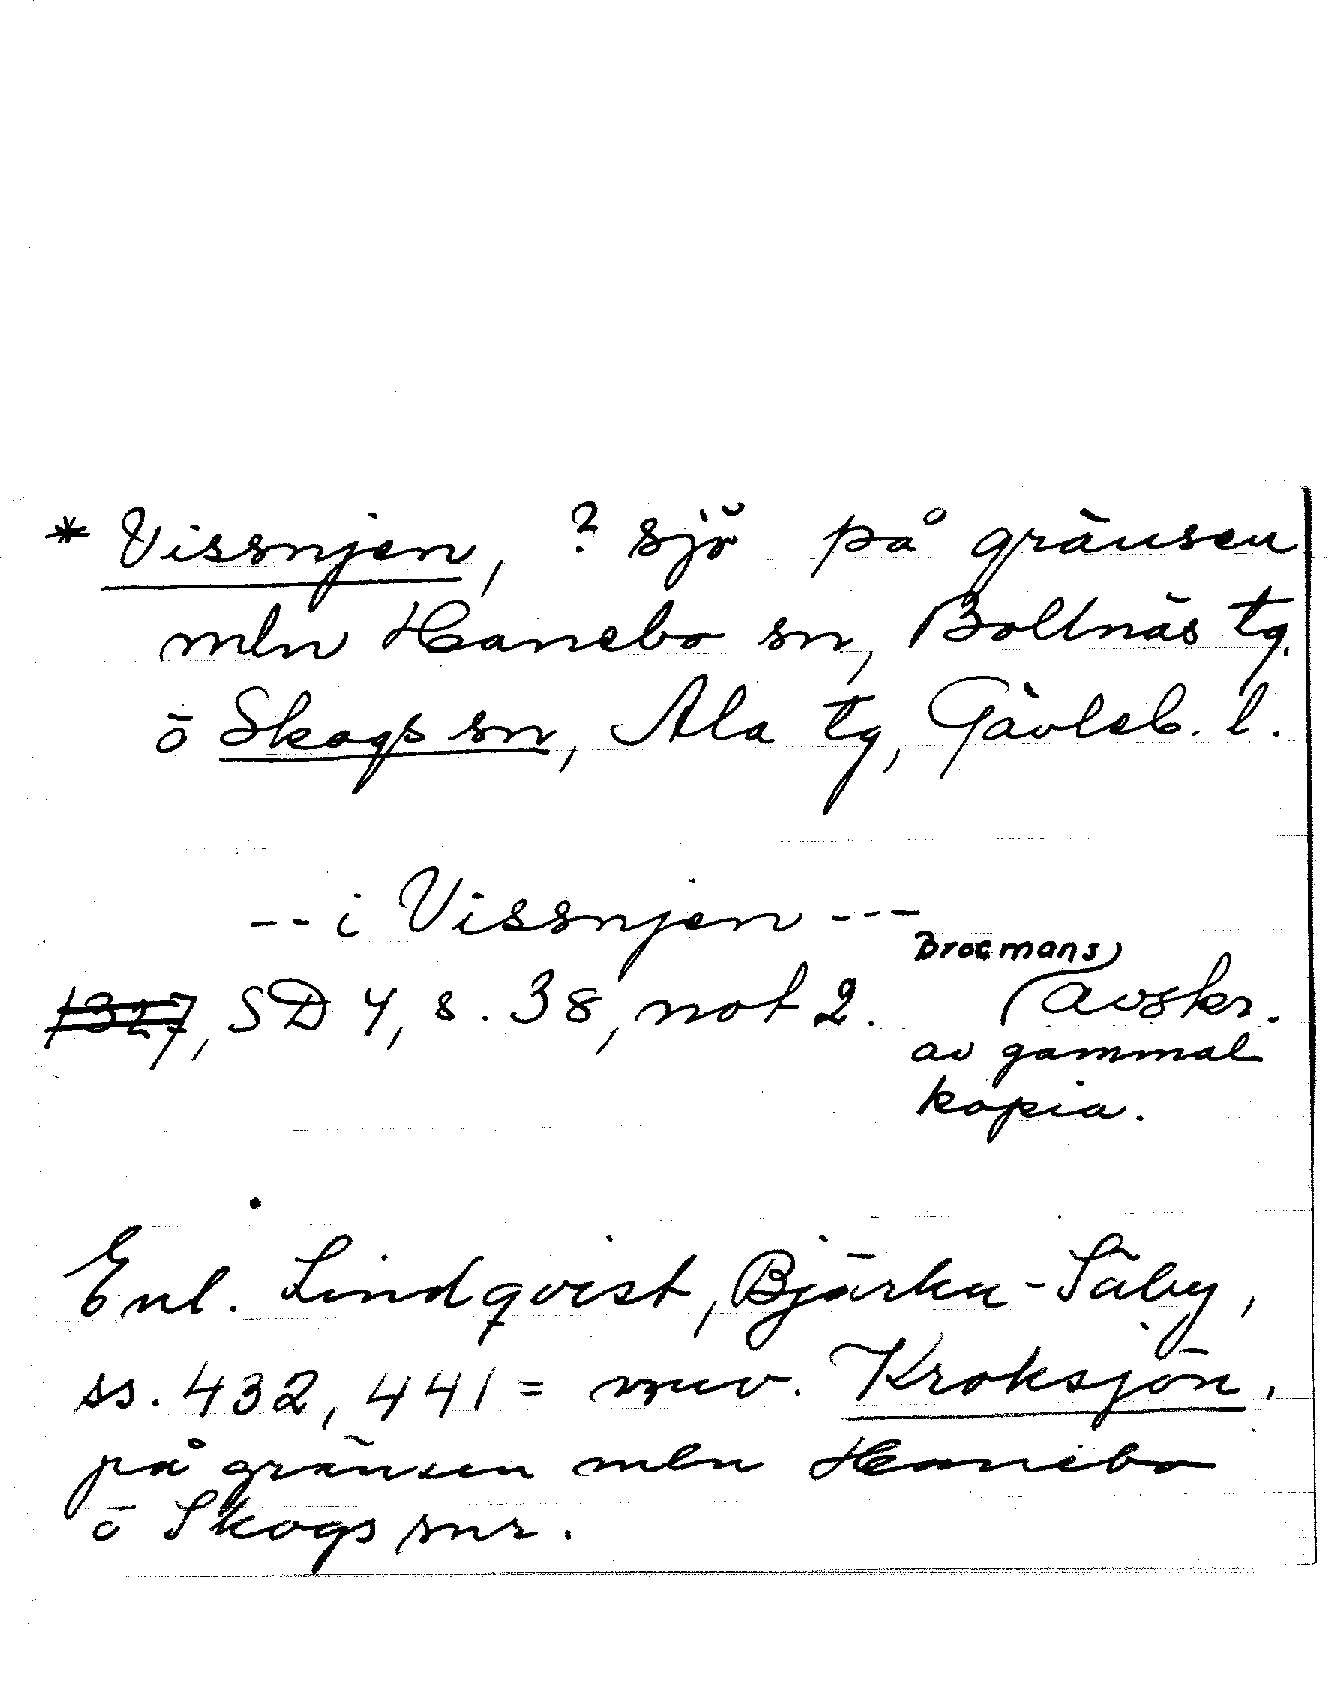 * Vissnjen, ? sjö på gränsen
mln Hanebo sn, Bollnäs tg.
o Skogs sn, Ala tg, Gävleb. l.
-- i Vissnjen ---
1327, SD 4, s. 38, not 2. Brocmans avskr.
av gammal
kopia.
Enl. Lindqvist, Bjärka-Säby,
ss. 432, 441 = nuv. Kroksjön,
på gränsen mln Hanebo
o Skogs snr.